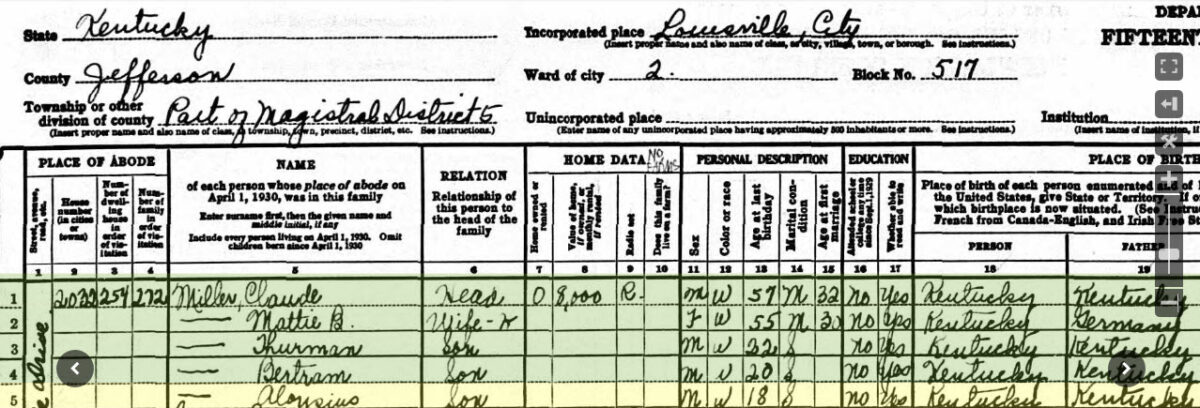 State Kentucky
Incorporated place Louisville, City
DEPA
(Insert proper name and also name of class, as city, village, town, or borough. See instructions.)
FIFTEENT
County Jefferson
Ward of city 2. Block No. 517
Township or other
division of county Part of Magistral District 5
Unincorporated place
Institution
(Insert proper name and also name of class, as township, town, precinct, district, etc. See instructions.)
(Enter name of any unincorporated place having approximately 500 inhabitants or more. See instructions.)
(Insert name of institution, if
PLACE OF ABODE
Street, avenue, road, etc.
House number (in cities or towns)
Number of dwelling house in order of visitation
Number of family in order of visitation
NAME
of each person whose place of abode on
April 1, 1930, was in this family
Enter surname first, then the given name and
middle initial, if any
Include every person living on April 1, 1930. Omit
children born since April 1, 1930
RELATION
Relationship of
this person to
the head of the
family
HOME DATA NO FARMS
Home owned or rented
Value of home, if owned, or monthly rental, if rented
Radio set
Does this family live on a farm?
PERSONAL DESCRIPTION
Sex
Color or race
Age at last birthday
Marital condition
Age at first marriage
EDUCATION
Attended school or college any time since Sept. 1, 1929
Whether able to read and write
PLACE OF BIRTH
Place of birth of each person enumerated and of
the United States, give State or Territory. If of
which birthplace is now situated. (See Instruc
French from Canada-English, and Irish Free St
PERSON
FATHER
1 2 3 4 5 6 7 8 9 10 11 12 13 14 15 16 17 18 19
1 2032 254 272 Miller, Claude Head O 8,000 R M W 57 M 32 No Yes Kentucky Kentucky
2 — Mattie B. Wife-H F W 55 M 30 No Yes Kentucky Germany
3 — Thurman Son M W 22 S No Yes Kentucky Kentucky
4 — Bertram Son M W 20 S No Yes Kentucky Kentucky
5 — Aloysius Son M W 18 S No Yes Kentucky Kentucky